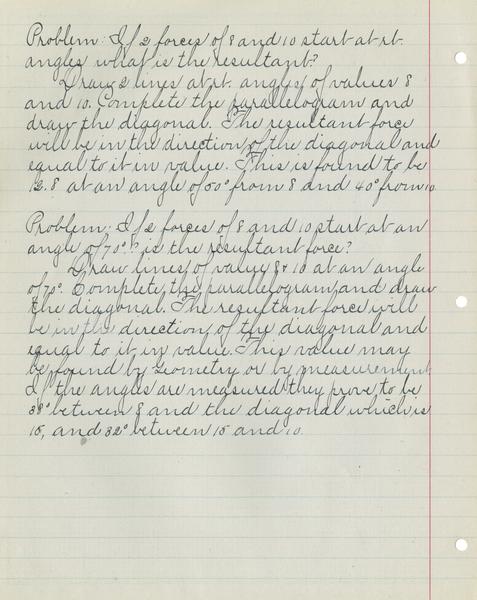 Problem: If 2 forces of 8 and 10 start at rt.
angles what is the resultant?
Draw 2 lines at rt. angles of values 8
and 10. Complete the parallelogram and
draw the diagonal. The resultant force
will be in the direction of the diagonal and
equal to it in value. This is found to be
12.8 at an angle of 50° from 8 and 40° from 10
Problem: If 2 forces of 8 and 10 start at an
angle of 70°? is the resultant force?
Draw lines of value 8 & 10 at an angle
of 70°. Complete the parallelogram and draw
the diagonal. The resultant force will
be in the direction of the diagonal and
equal to it in value. This value may
be found by Geometry or by measurement
If the angles are measured they prove to be
38° between 8 and the diagonal which is
15, and 32° between 15 and 10.